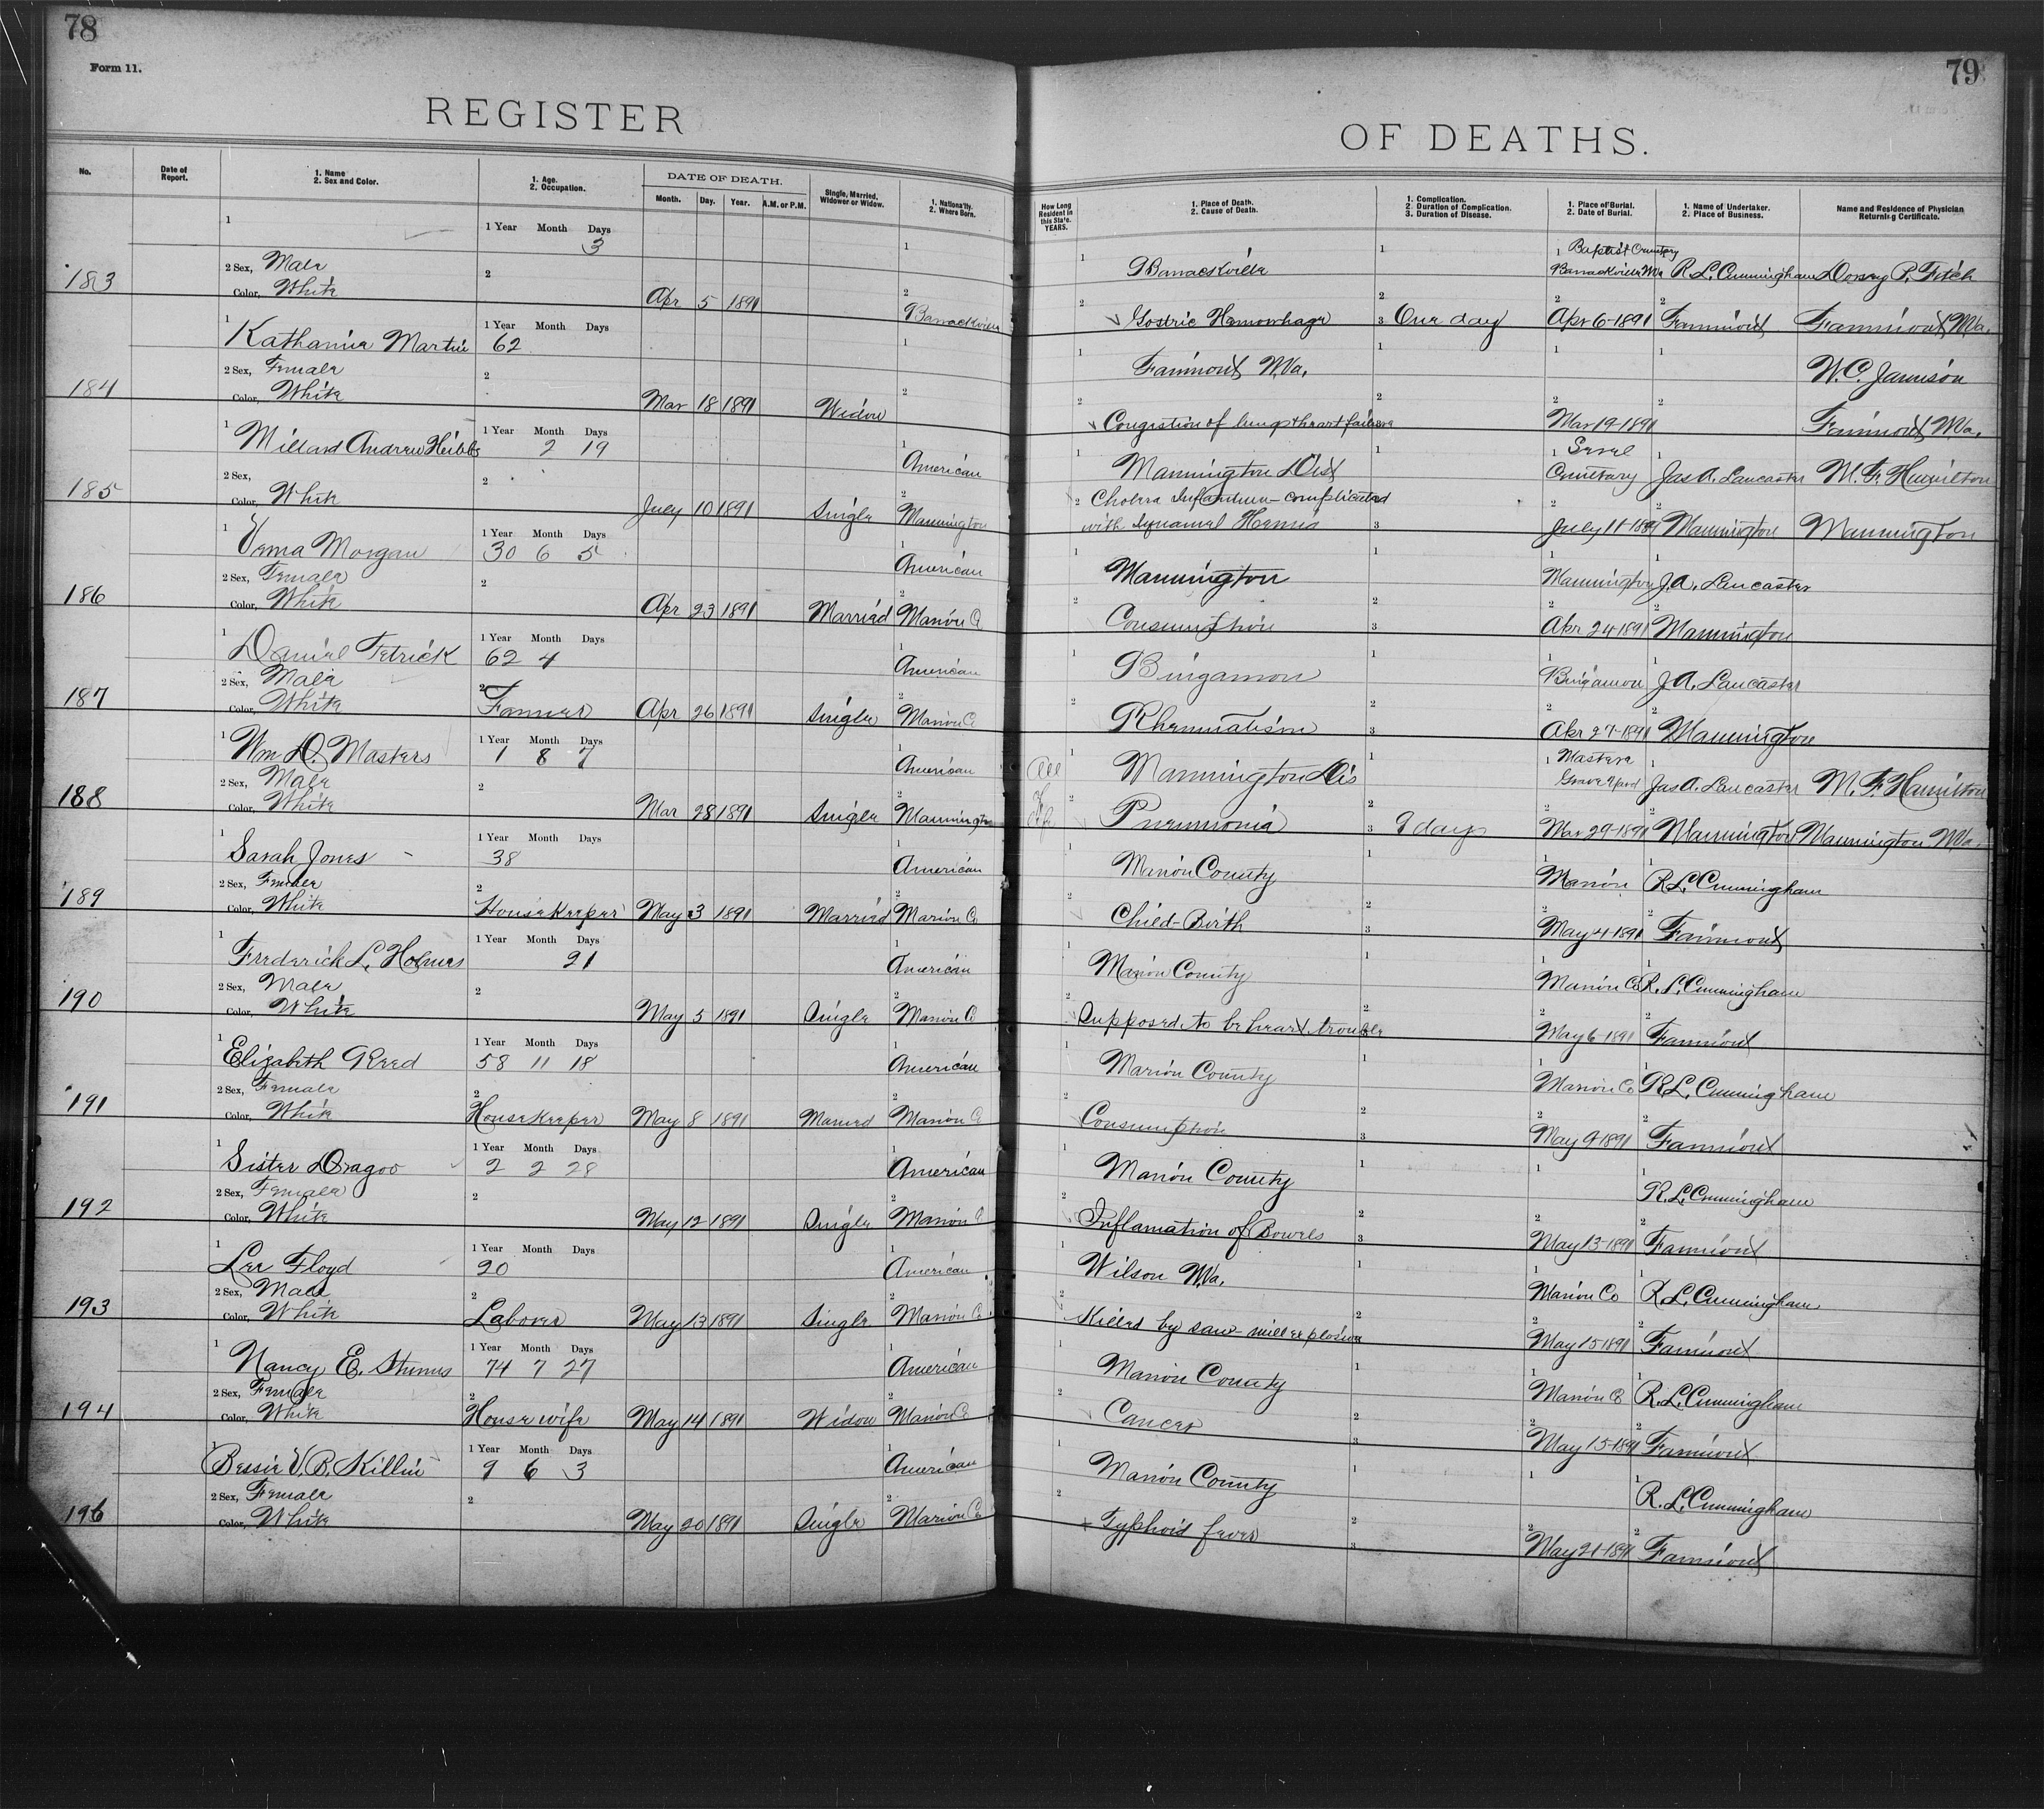 78
Form 11.
REGISTER
No.
Date of Report.
1. Name
2. Sex and Color.
1. Age.
2. Occupation.
DATE OF DEATH.
Month. Day. Year. A.M. or P.M.
Single, Married, Widower or Widow.
1. Nationality.
2. Where Born.
79
OF DEATHS.
How Long Resident in this State. YEARS.
1. Place of Death.
2. Cause of Death.
1. Complication.
2. Duration of Complication.
3. Duration of Disease.
1. Place of Burial.
2. Date of Burial.
1. Name of Undertaker.
2. Place of Business.
Name and Residence of Physician Returning Certificate.
1 1 Year Month Days 1 1 Barrackville 1 1 Baptist Cemetery
3
183 2 Sex, Male 2 Barrackville W Va R. L. Cunningham Dorsey P. Fitch
Color, White Apr 5 1891 2 Barrackville 2 Gastric Hemorrhage 2 3 One day 2 Apr 6-1891 2 Fairmont Fairmont W.Va.
1 Katharine Martin 1 Year Month Days 62 1 1 Fairmont W.Va. 1 1 1 W. C. Jamison
184 2 Sex, Female 2
Color, White Mar 18 1891 Widow 2 2 Congestion of lungs & heart failure 2 2 Mar 19-1891 2 Fairmont W.Va.
1 Millard Andrew Hibbs 1 Year Month Days 2 19 1 American 1 Mannington Dist 1 1 Cemetary 1 Jas A. Lancaster M. F. Hamilton
185 2 Sex, 2
Color, White July 10 1891 Single 2 Mannington 2 Cholera Infantum - complicated
with Hernia 3 2 July 11-1891 Mannington Mannington
1 Verna Morgan 1 Year Month Days 30 6 5 1 American 1 Mannington 1 1 Mannington 1 J. A. Lancaster
186 2 Sex, Female 2
Color, White Apr 23 1891 Married 2 Marion Co 2 Consumption 2 3 2 Apr 24-1891 2 Mannington
1 Daniel Tetrick 1 Year Month Days 62 4 1 American 1 Bingamon 1 1 Bingamon 1 J. A. Lancaster
187 2 Sex, Male
Color, White 2 Farmer Apr 26 1891 Single 2 Marion Co 2 Rheumatism 2 3 2 Apr 27-1891 2 Mannington
1 Wm D. Masters 1 Year Month Days 1 8 7 1 American All 1 Mannington Dis 1 1 Masters Grave Yard 1 Jas A. Lancaster M. F. Hamilton
188 2 Sex, Male 2
Color, White Mar 28 1891 Single Mannington 2 Pneumonia 2 3 9 days Mar 29-1891 Mannington Mannington W.Va.
1 Sarah Jones 1 Year Month Days 38 1 American 1 Marion County 1 1 Marion 1 R. L. Cunningham
189 2 Sex, Female
Color, White 2 Housekeeper May 3 1891 Married 2 Marion Co 2 Child-Birth 2 3 2 May 4-1891 2 Fairmont
1 Frederick L. Holmes 1 Year Month Days 21 1 American 1 Marion County 1 1 Marion Co 1 R. L. Cunningham
190 2 Sex, Male 2
Color, White May 5 1891 Single 2 Marion Co 2 Supposed to be heart trouble 2 2 May 6-1891 2 Fairmont
1 Elizabeth Reed 1 Year Month Days 58 11 18 1 American 1 Marion County 1 1 Marion Co 1 R. L. Cunningham
191 2 Sex, Female
Color, White 2 Housekeeper May 8 1891 Married 2 Marion Co 2 Consumption 2 3 2 May 9-1891 2 Fairmont
1 Sister Dragoo 1 Year Month Days 2 2 28 1 American 1 Marion County 1 1 1 R. L. Cunningham
192 2 Sex, Female 2
Color, White May 12 1891 Single 2 Marion Co 2 Inflamation of Bowels 2 3 2 May 13-1891 2 Fairmont
1 Lee Floyd 1 Year Month Days 20 1 American 1 Wilson W.Va. 1 1 Marion Co 1 R. L. Cunningham
193 2 Sex, Male
Color, White 2 Laborer May 13 1891 Single 2 Marion Co 2 Killed by saw-mill explosion 2 2 May 15 1891 2 Fairmont
1 Nancy E. 1 Year Month Days 74 7 27 1 American 1 Marion County 1 1 Marion Co 1 R. L. Cunningham
194 2 Sex, Female
Color, White 2 House wife May 14 1891 Widow 2 Marion Co 2 Cancer 2 3 2 May 15-1891 2 Fairmont
1 Bessie V. B. Killin 1 Year Month Days 9 6 3 1 American 1 Marion County 1 1 1 R. L. Cunningham
196 2 Sex, Female 2
Color, White May 20 1891 Single 2 Marion Co 2 Typhoid fever 2 3 2 May 21-1891 2 Fairmont